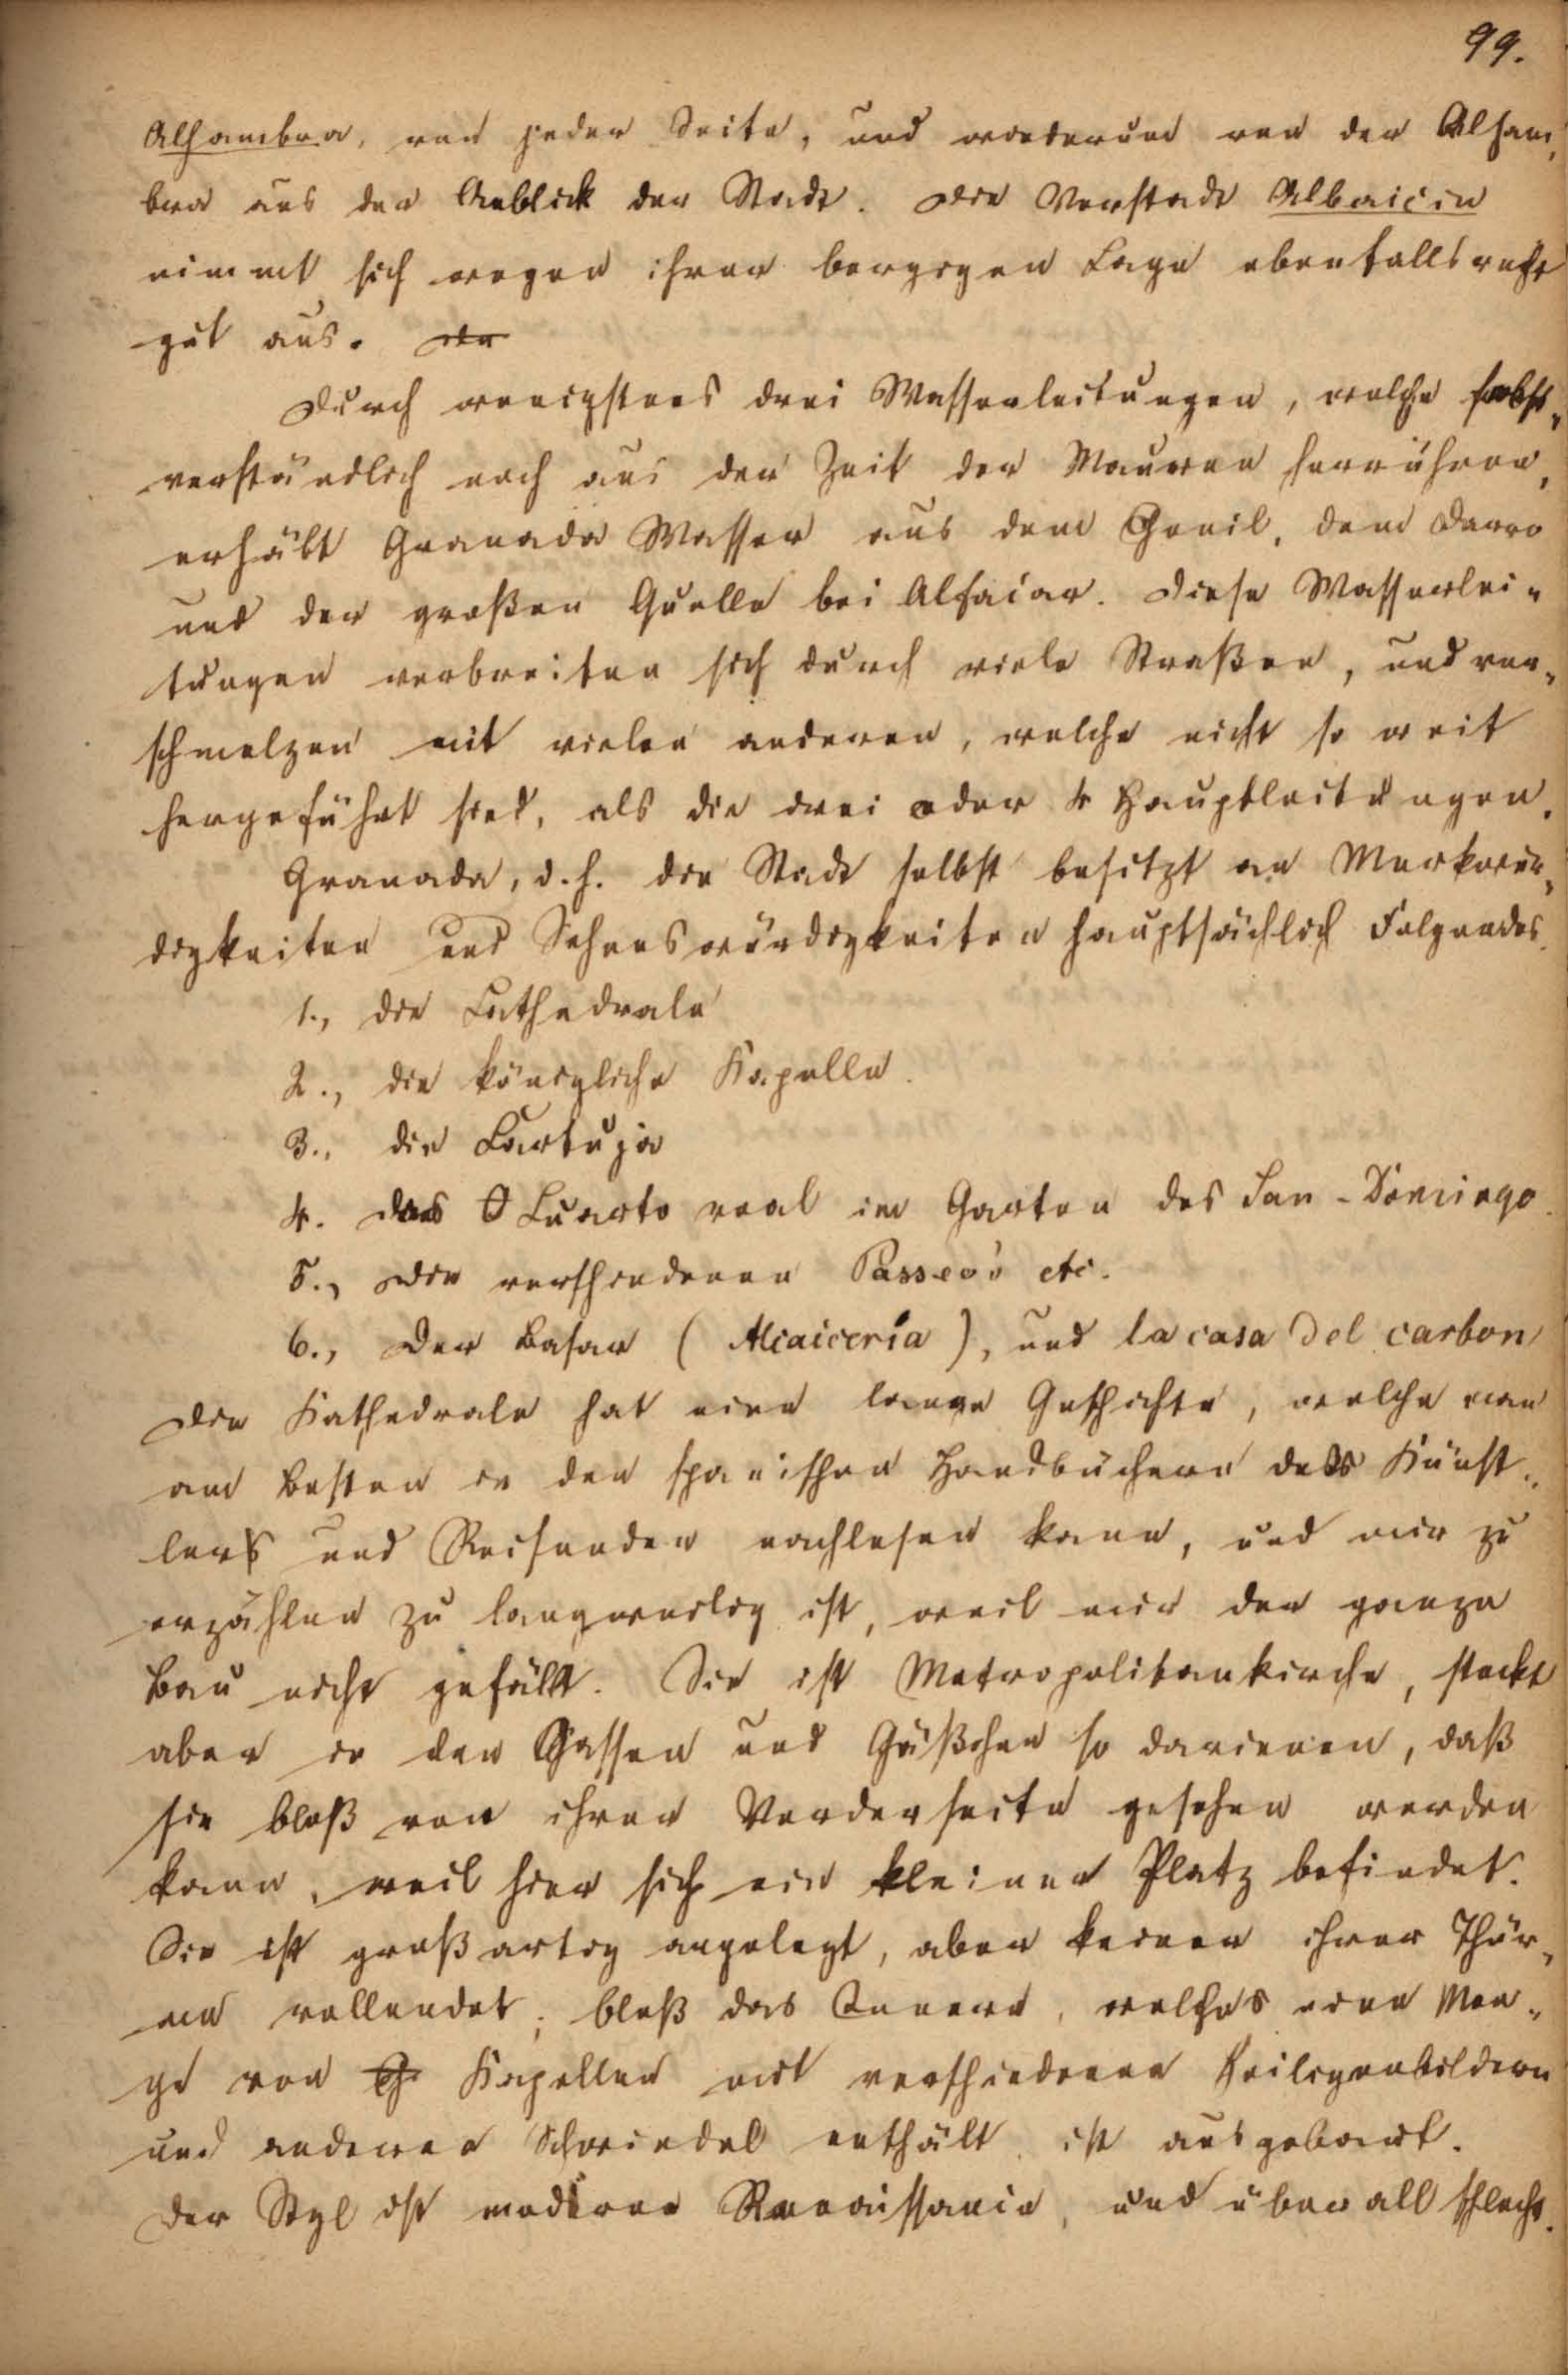 99.
Alhambra, von jeder Seite, und wiederum von der Alham„
bra aus der Anblick der Stadt. Die Vorstadt Albaicin
nimmt sich wegen ihrer bergigen Lage ebenfalls recht
gut aus. Da
Durch wenigstens drei Wasserleitungen, welche selbst„
verständlich noch aus der Zeit der Mauren herrühren,
erhält Granada Wasser aus dem Genil, dem Darro
und der großen Quelle bei Alfacar. Diese Wasserlei„
tungen verbreiten sich durch viele Straßen, und ver„
schmelzen mit vielen anderen, welche nicht so weit
hergeführt sind, als die drei oder 4 Hauptleitungen.
Granada, d. h. die Stadt selbst besitzt an Merkwür„
digkeiten und Sehenswürdigkeiten hauptsächlich Folgendes.
1., die Cathedrale
2., die königliche Kapelle.
3., die Cartuja
4. das Cuarto real im Garten des San-Domingo.
5., Die verschiedenen Passeo's etc.
6., Der Basar (Alcaiceria), und la casa del carbon
Die Kathedrale hat eine lange Geschichte, welche man
am Besten in den spanischen Handbüchern des Künst„
lers und Reisenden nachlesen kann, und mir zu
erzählen zu langweilig ist, weil mir der ganze
Bau nicht gefällt. Sie ist Metropolitankirche, steckt
aber in den Gassen und Gäßchen so darinnen, daß
sie bloß von ihrer Vorderseite gesehen werden
kann, weil hier sich ein kleiner Platz befindet.
Sie ist großartig angelegt, aber keinen ihrer Thür„
me vollendet; bloß das Innere, welches eine Men„
ge von G. Kapellen mit verschiedenen Heiligenbildern
und anderen Schwindel enthält, ist ausgebaut.
Der Styl ist moderne Renaissance, und überall schlecht.